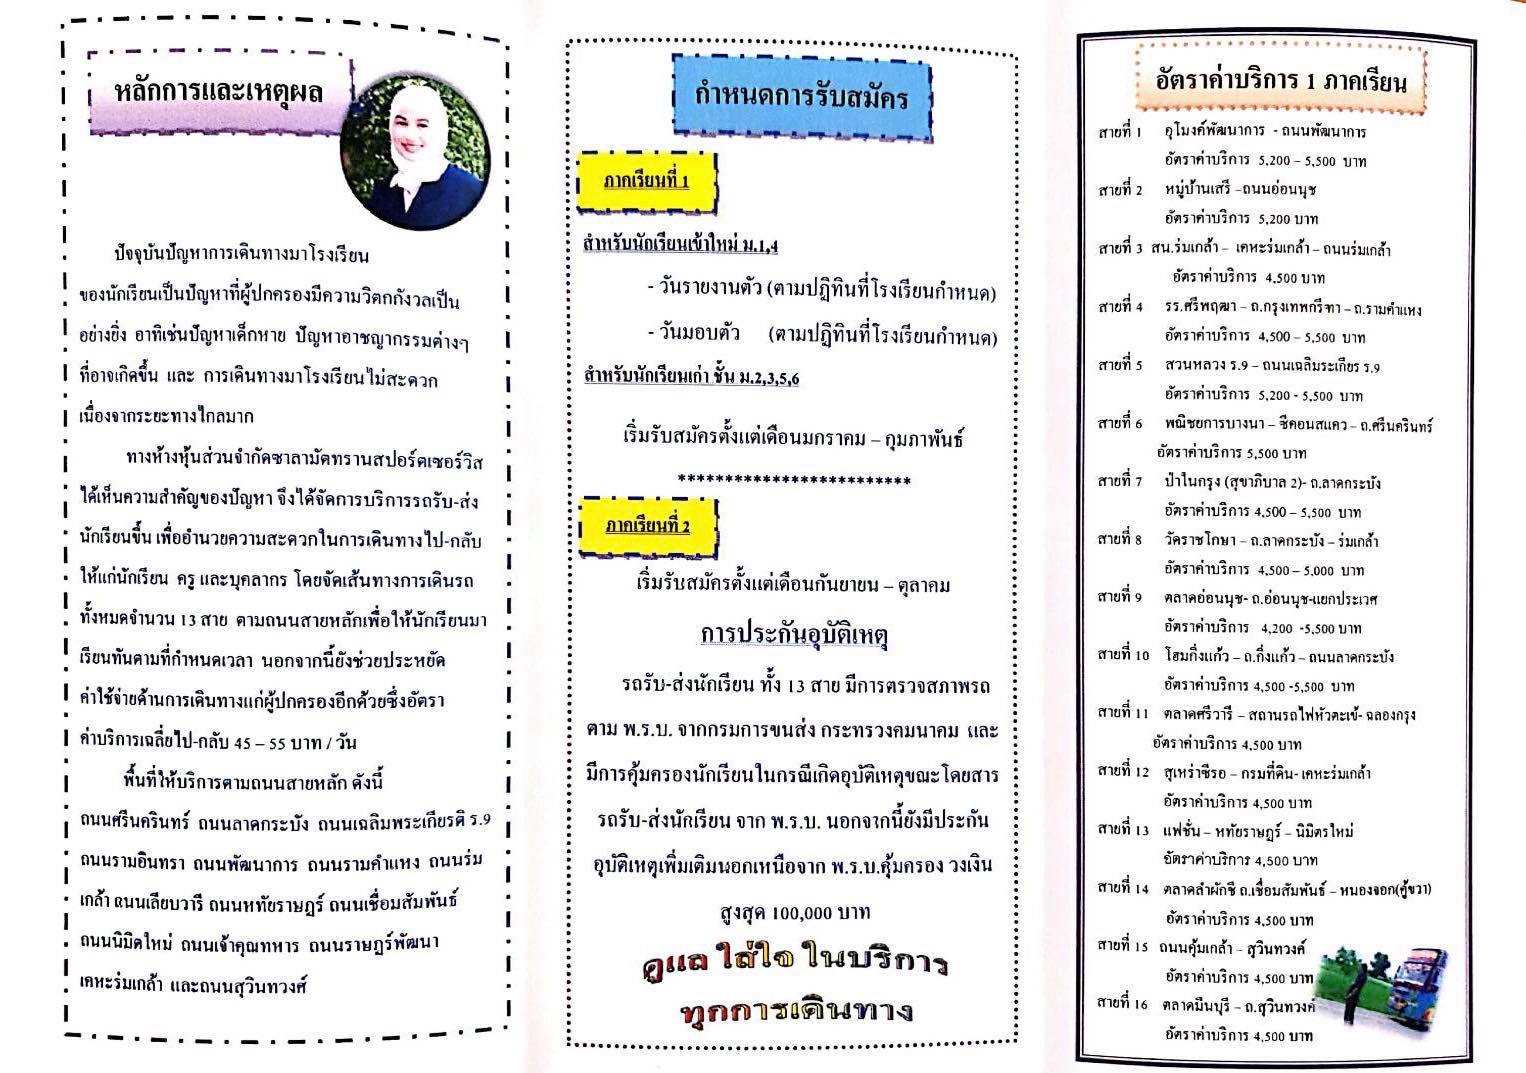 หลักการและเหตุผล
ปัจจุบันปัญหาการเดินทางมาโรงเรียน
ของนักเรียนเป็นปัญหาที่ผู้ปกครองมีความวิตกกังวลเป็น
อย่างยิ่ง อาทิเช่นปัญหาเด็กหาย ปัญหาอาชญากรรมต่างๆ
ที่อาจเกิดขึ้น และ การเดินทางมาโรงเรียนไม่สะดวก
เนื่องจากระยะทางไกลมาก
ทางห้างหุ้นส่วนจำกัดซาลามัตทรานสปอร์ตเซอร์วิส
ได้เห็นความสำคัญของปัญหา จึงได้จัดการบริการรถรับ-ส่ง
นักเรียนขึ้น เพื่ออำนวยความสะดวกในการเดินทางไป-กลับ
ให้แก่นักเรียน ครู และบุคลากร โดยจัดเส้นทางการเดินรถ
ทั้งหมดจำนวน 13 สาย ตามถนนสายหลักเพื่อให้นักเรียนมา
เรียนทันตามที่กำหนดเวลา นอกจากนี้ยังช่วยประหยัด
ค่าใช้จ่ายด้านการเดินทางแก่ผู้ปกครองอีกด้วยซึ่งอัตรา
ค่าบริการเฉลี่ยไป-กลับ 45 – 55 บาท / วัน
พื้นที่ให้บริการตามถนนสายหลัก ดังนี้
ถนนศรีนครินทร์ ถนนลาดกระบัง ถนนเฉลิมพระเกียรติ ร.9
ถนนรามอินทรา ถนนพัฒนาการ ถนนรามคำแหง ถนนร่ม
เกล้า ถนนเลียบวารี ถนนหทัยราษฎร์ ถนนเชื่อมสัมพันธ์
ถนนนิมิตใหม่ ถนนเจ้าคุณทหาร ถนนราษฎร์พัฒนา
เคหะร่มเกล้า และถนนสุวินทวงศ์
กำหนดการรับสมัคร
ภาคเรียนที่ 1
สำหรับนักเรียนเข้าใหม่ ม.1,4
- วันรายงานตัว (ตามปฏิทินที่โรงเรียนกำหนด)
- วันมอบตัว (ตามปฏิทินที่โรงเรียนกำหนด)
สำหรับนักเรียนเก่า ชั้น ม.2,3,5,6
เริ่มรับสมัครตั้งแต่เดือนมกราคม – กุมภาพันธ์
*************************
ภาคเรียนที่ 2
เริ่มรับสมัครตั้งแต่เดือนกันยายน – ตุลาคม
การประกันอุบัติเหตุ
รถรับ-ส่งนักเรียน ทั้ง 13 สาย มีการตรวจสภาพรถ
ตาม พ.ร.บ. จากกรมการขนส่ง กระทรวงคมนาคม และ
มีการคุ้มครองนักเรียนในกรณีเกิดอุบัติเหตุขณะโดยสาร
รถรับ-ส่งนักเรียน จาก พ.ร.บ. นอกจากนี้ยังมีประกัน
อุบัติเหตุเพิ่มเติมนอกเหนือจาก พ.ร.บ.คุ้มครอง วงเงิน
สูงสุด 100,000 บาท
ดูแล ใส่ใจ ในบริการ
ทุกการเดินทาง
อัตราค่าบริการ 1 ภาคเรียน
สายที่ 1 อุโมงค์พัฒนาการ - ถนนพัฒนาการ
อัตราค่าบริการ 5,200 – 5,500 บาท
สายที่ 2 หมู่บ้านเสรี –ถนนอ่อนนุช
อัตราค่าบริการ 5,200 บาท
สายที่ 3 สน.ร่มเกล้า – เคหะร่มเกล้า – ถนนร่มเกล้า
อัตราค่าบริการ 4,500 บาท
สายที่ 4 รร.ศรีพฤฒา – ถ.กรุงเทพกรีฑา – ถ.รามคำแหง
อัตราค่าบริการ 4,500 – 5,500 บาท
สายที่ 5 สวนหลวง ร.9 – ถนนเฉลิมระเกียร ร.9
อัตราค่าบริการ 5,200 - 5,500 บาท
สายที่ 6 พณิชยการบางนา – ซีคอนสแคว – ถ.ศรีนครินทร์
อัตราค่าบริการ 5,500 บาท
สายที่ 7 ป่าในกรุง (สุขาภิบาล 2)- ถ.ลาดกระบัง
อัตราค่าบริการ 4,500 – 5,500 บาท
สายที่ 8 วัดราชโกษา – ถ.ลาดกระบัง – ร่มเกล้า
อัตราค่าบริการ 4,500 – 5,000 บาท
สายที่ 9 ตลาดอ่อนนุช- ถ.อ่อนนุช-แยกประเวศ
อัตราค่าบริการ 4,200 -5,500 บาท
สายที่ 10 โฮมกิ่งแก้ว – ถ.กิ่งแก้ว – ถนนลาดกระบัง
อัตราค่าบริการ 4,500 -5,500 บาท
สายที่ 11 ตลาดศรีวารี – สถานรถไฟหัวตะเข้- ฉลองกรุง
อัตราค่าบริการ 4,500 บาท
สายที่ 12 สุเหร่าซีรอ – กรมที่ดิน- เคหะร่มเกล้า
อัตราค่าบริการ 4,500 บาท
สายที่ 13 แฟชั่น – หทัยราษฎร์ – นิมิตรใหม่
อัตราค่าบริการ 4,500 บาท
สายที่ 14 ตลาดลำผักชี ถ.เชื่อมสัมพันธ์ – หนองจอก(คู้ขวา)
อัตราค่าบริการ 4,500 บาท
สายที่ 15 ถนนคุ้มเกล้า – สุวินทวงศ์
อัตราค่าบริการ 4,500 บาท
สายที่ 16 ตลาดมีนบุรี – ถ.สุวินทวงศ์
อัตราค่าบริการ 4,500 บาท